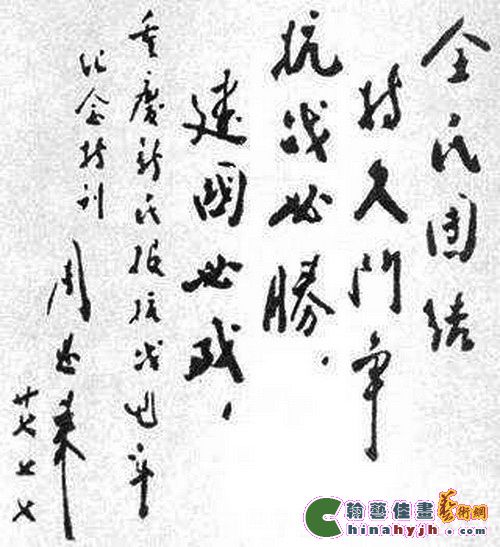 全民团结
持久鬥争
抗战必勝.
建國必成,
重慶新民报抗战週年
纪念特刊
周恩来
廿七七七
翰藝佳畫藝術網
Chinahyjh.com